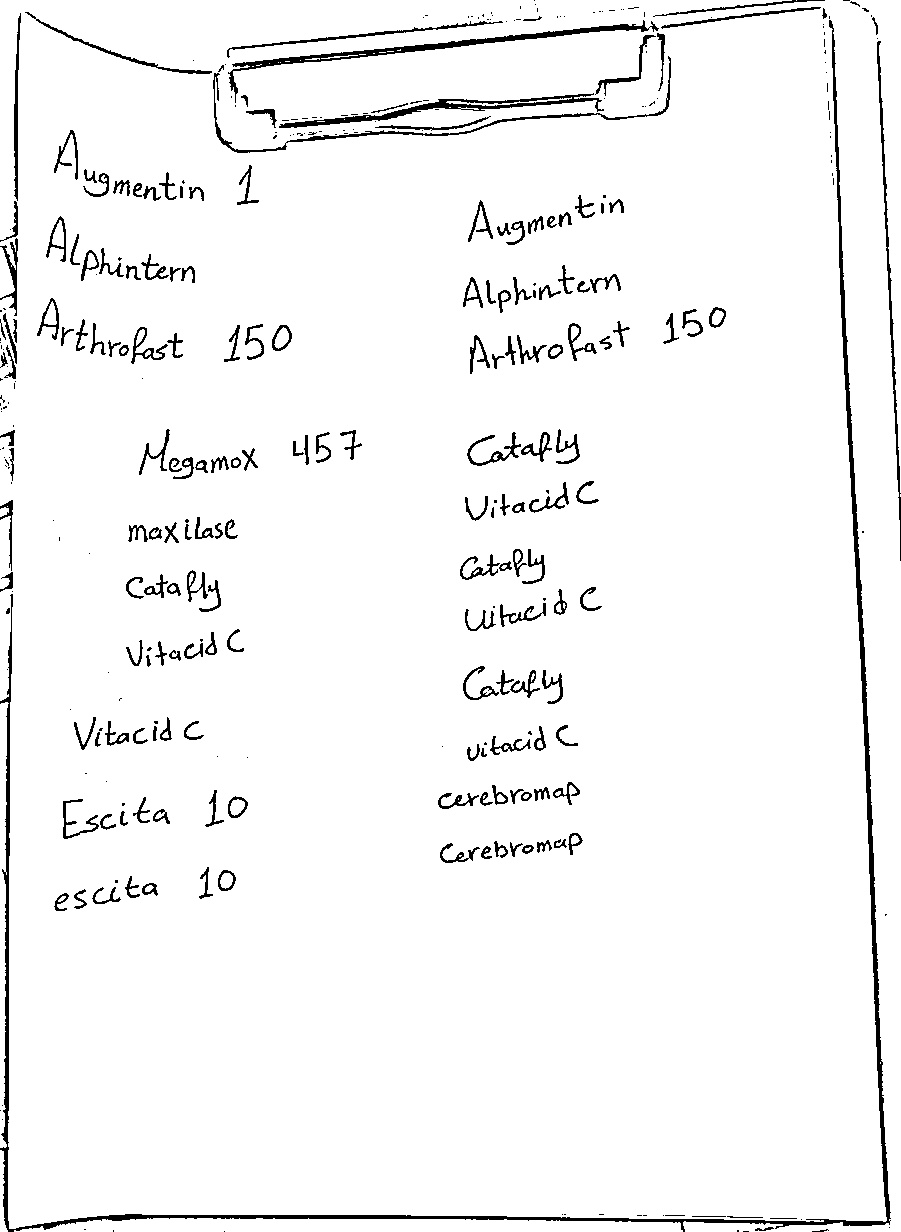 Augmentin 1
Alphintern
Arthrofast 150
Megamox 457
maxilase
Catafly
Vitacid C
Vitacid C
Escita 10
escita 10
Augmentin
Alphintern
Arthrofast 150
Catafly
Vitacid C
Catafly
Vitacid C
Catafly
vitacid C
cerebromap
Cerebromap